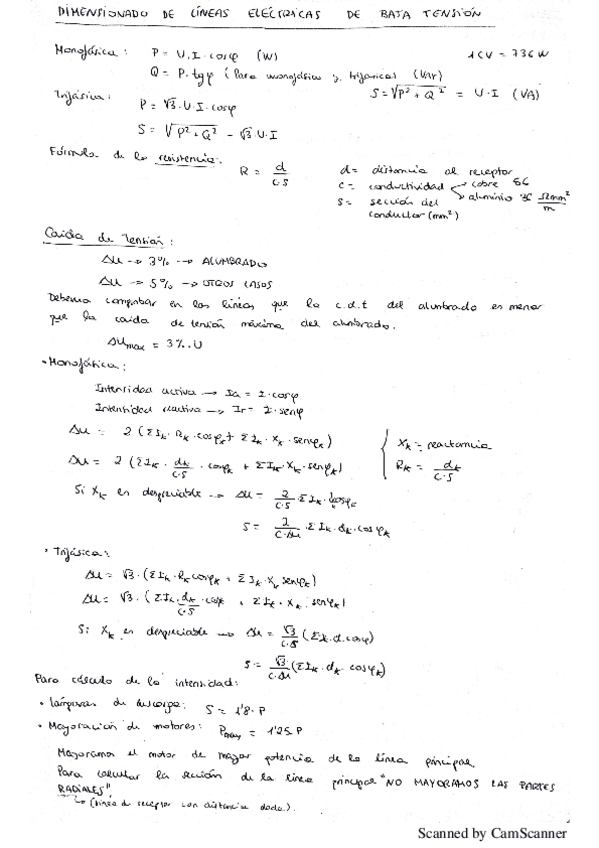 DIMENSIONADO DE LÍNEAS ELÉCTRICAS DE BAJA TENSIÓN
Monofásica: P = U.I.cosφ (W) 1 CV = 736 W
Q = P.tgφ (Para monofásico y trifásica) (VAr)
Trifásica: S = √P² + Q² = U·I (VA)
P = √3·U·I·cosφ
S = √P² + Q² = √3·U·I
Fórmula de la resistencia:
R = d / C·S
d = distancia al receptor
C = conductividad cobre 56 aluminio 35 Ωmm²/m
S = sección del conductor (mm²)
Caída de Tensión:
Δu → 3% → ALUMBRADO
Δu → 5% → OTROS CASOS
Debemos comprobar en las líneas que la c.d.t del alumbrado es menor
que la caída de tensión máxima del alumbrado.
Δu max = 3%.U
• Monofásica:
Intensidad activa → Ia = I·cosφ
Intensidad reactiva → Ir = I·senφ
Δu = 2 (ΣIk·Rk·cosφk + ΣIk·Xk·senφk)
Xk = reactancia
Δu = 2 (ΣIk·dk/C·S·cosφk + ΣIk·Xk·senφk)
Rk = dk/C·S
Si Xk es despreciable → Δu = 2/C·S·ΣIk·cosφk
S = 2/C·Δu·ΣIk·dk·cosφk
• Trifásica:
Δu = √3·(ΣIk·Rk cosφk + ΣIk·Xk senφk)
Δu = √3·(ΣIk·dk/C·S·cosφk + ΣIk·Xk·senφk)
Si Xk es despreciable → Δu = √3/C·S (ΣIk·d·cosφ)
S = √3/C·Δu (ΣIk·dk·cosφk)
Para cálculo de la intensidad:
• Lámparas de descarga: S = 1'8·P
• Mayoración de motores: Pmay = 1'25·P
Mayoramos el motor de mayor potencia de la línea principal.
Para calcular la sección de la línea principal "NO MAYORAMOS LAS PARTES
RADIALES"
↳ (línea de receptor con distancia dada).
Scanned by CamScanner